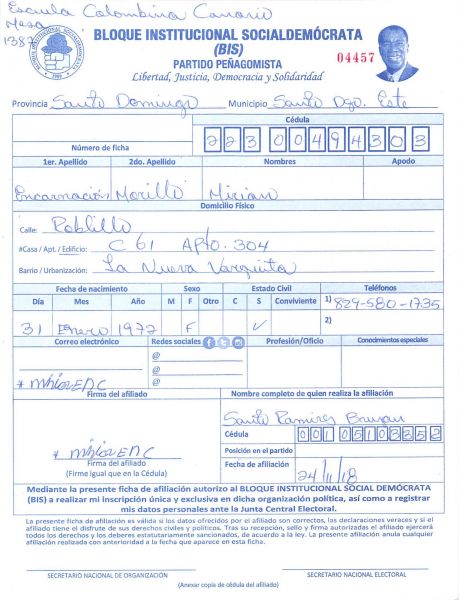 Escuela Colombina Canario
Mesa
1382
BLOQUE INSTITUCIONAL SOCIALDEMÓCRATA
(BIS)
PARTIDO PEÑAGOMISTA
Libertad, Justicia, Democracia y Solidaridad
04457
Provincia Santo Domingo Municipio Santo Dgo. Este
Cédula
Número de ficha 223 0049430 3
1er. Apellido 2do. Apellido Nombres Apodo
Encarnación Morillo Mirian
Domicilio Físico
Calle: Roblillo
#Casa / Apt. / Edificio: C 61 APTO. 304
Barrio / Urbanización: La Nueva Barquita
Fecha de nacimiento Sexo Estado Civil Teléfonos
Día Mes Año M F Otro C S Conviviente 1) 829-580-1735
31 Enero 1972 F ✓ 2)
Correo electrónico Redes sociales Profesión/Oficio Conocimientos especiales
@
@
@
Firma del afiliado Nombre completo de quien realiza la afiliación
Santo Ramirez
Cédula
Posición en el partido
Firma del afiliado
(Firme igual que en la Cédula)
Fecha de afiliación 24/11/18
Mediante la presente ficha de afiliación autorizo al BLOQUE INSTITUCIONAL SOCIAL DEMÓCRATA
(BIS) a realizar mi inscripción única y exclusiva en dicha organización política, así como a registrar
mis datos personales ante la Junta Central Electoral.
La presente ficha de afiliación es válida si los datos ofrecidos por el afiliado son correctos, las declaraciones veraces y si el
afiliado tiene el disfrute de sus derechos civiles y políticos. Tras su recepción, sello y firma autorizadas el afiliado ejercerá
todos los derechos y los deberes estatutariamente sancionados, de acuerdo a la ley. La presente afiliación anula cualquier
afiliación realizada con anterioridad a la fecha que aparece en esta ficha.
SECRETARIO NACIONAL DE ORGANIZACIÓN SECRETARIO NACIONAL ELECTORAL
(Anexar copia de cédula del afiliado)